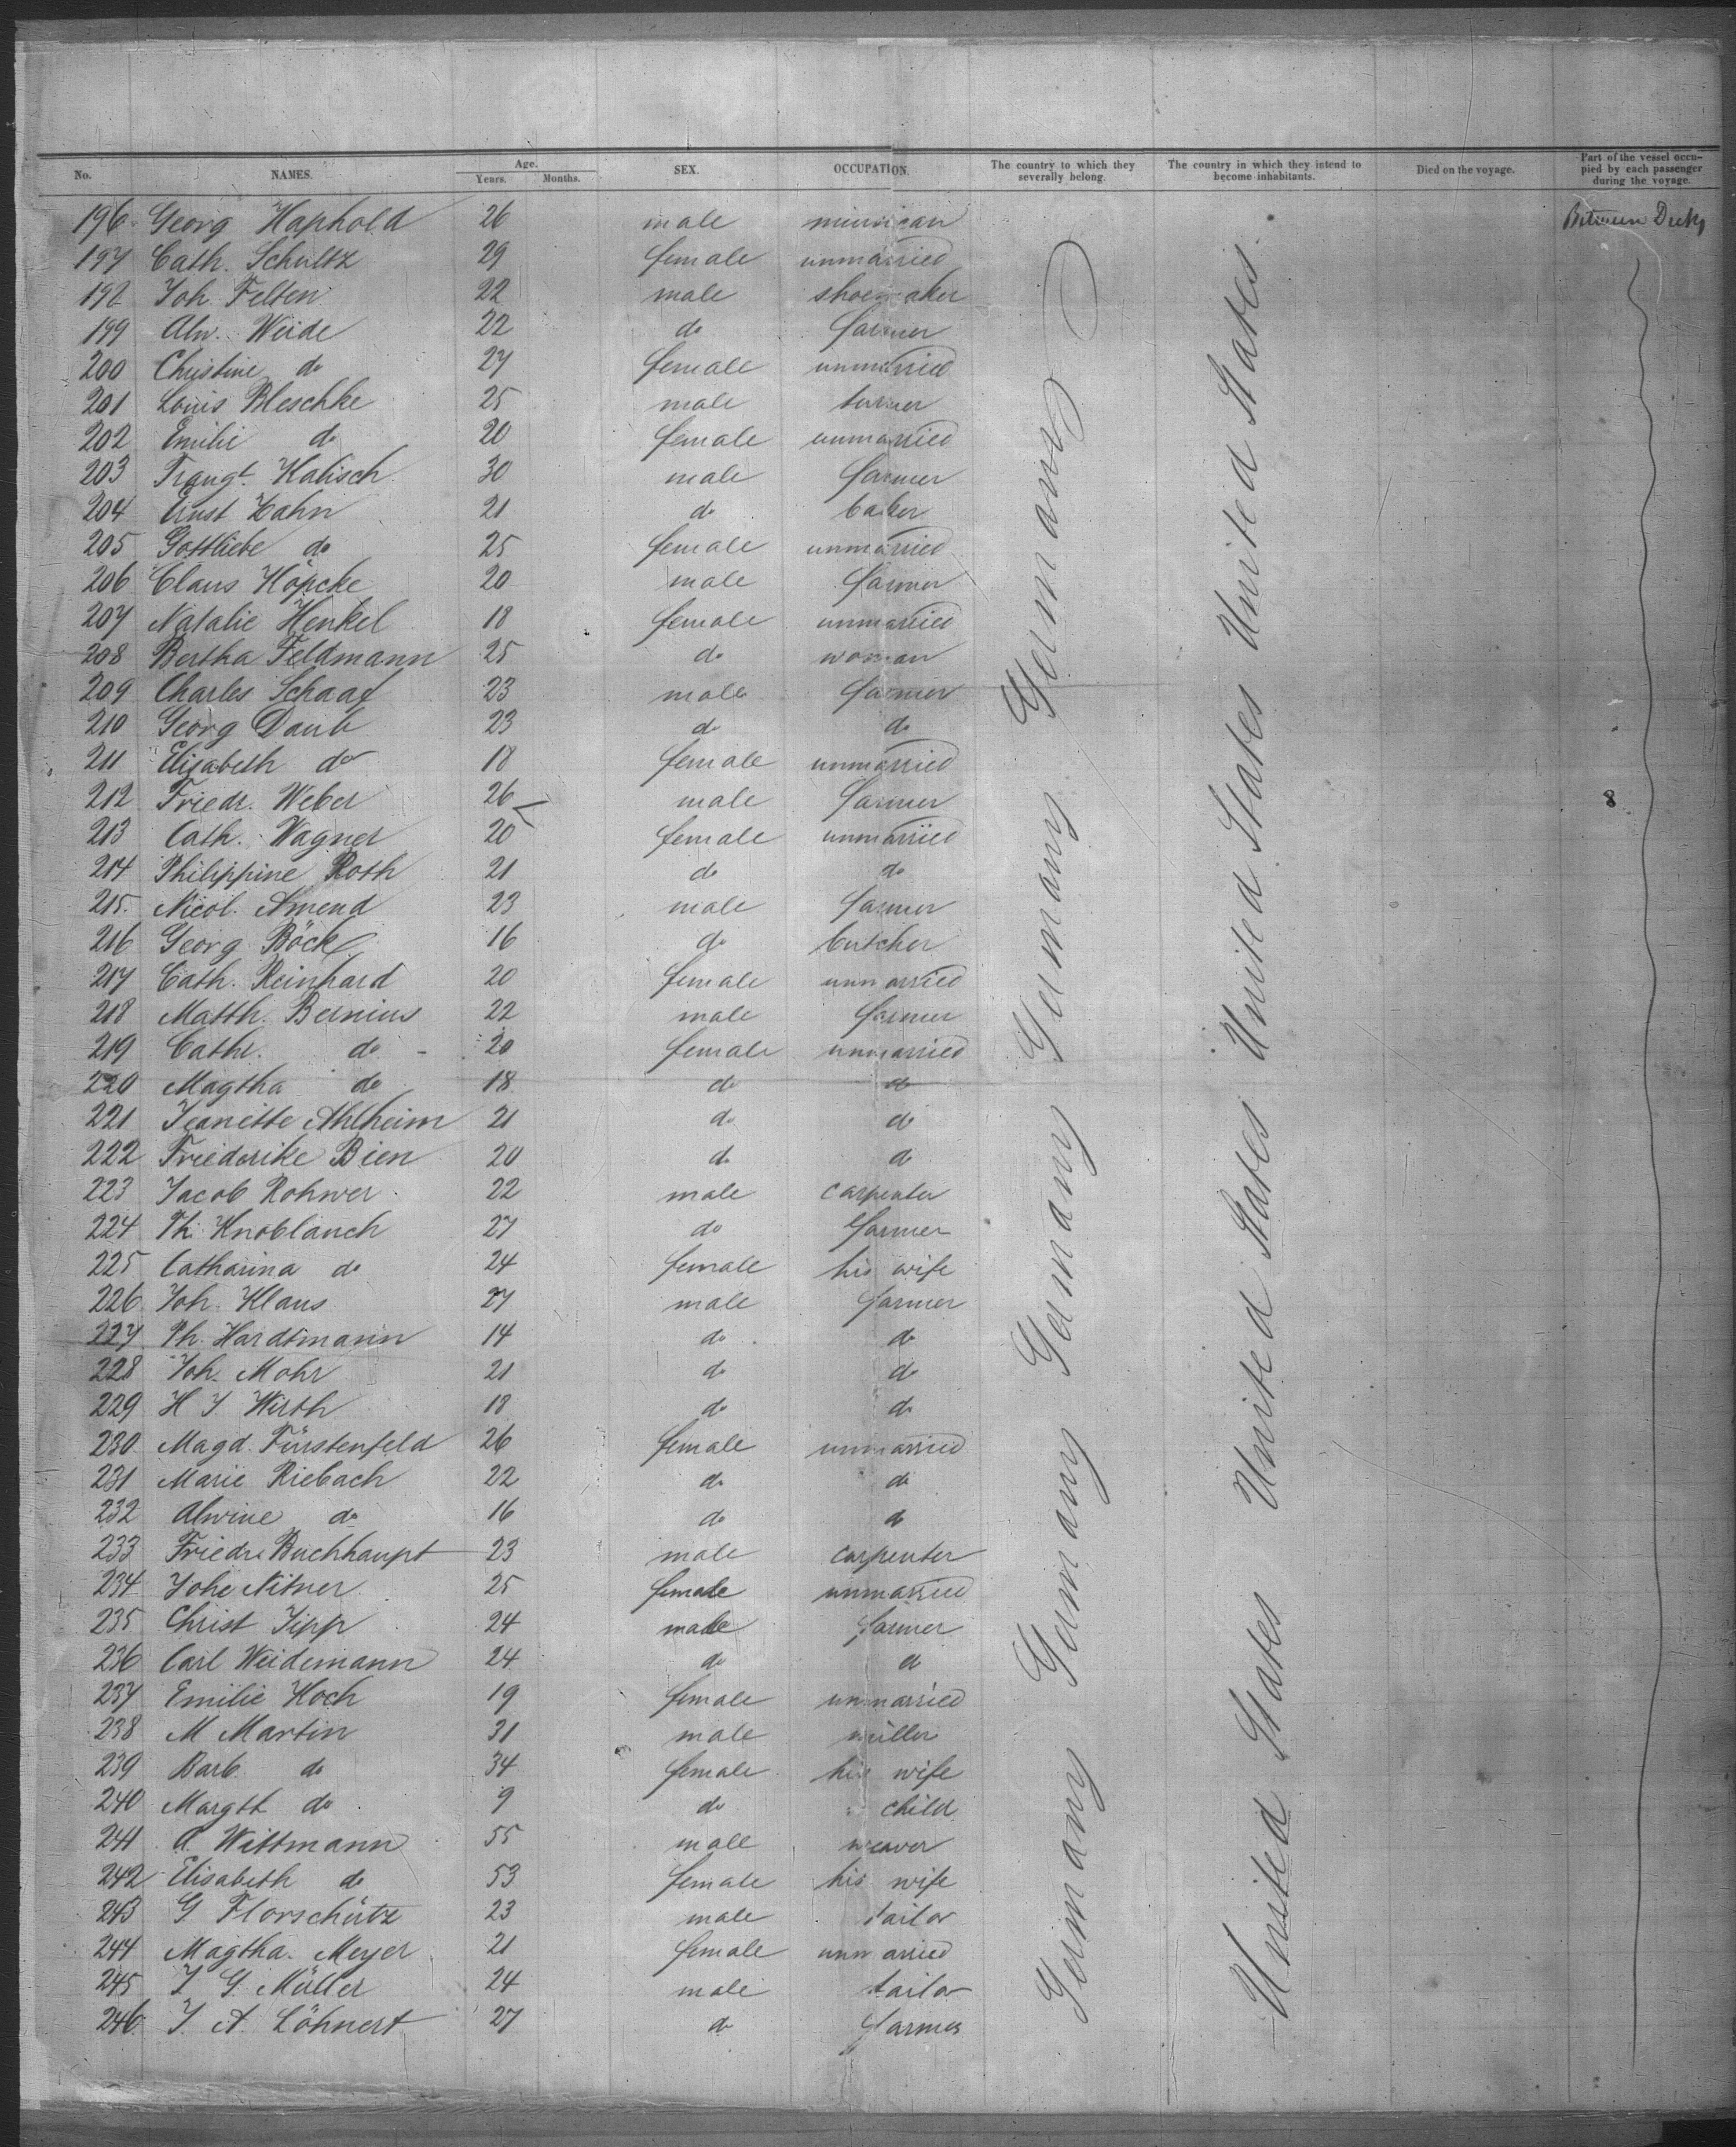 No. NAMES. Age. Years. Months. SEX. OCCUPATION. The country to which they severally belong. The country in which they intend to become inhabitants. Died on the voyage. Part of the vessel occupied by each passenger during the voyage.
196 Georg Haphold 26 male musican Between Decks
197 Cath. Schultz 29 female unmarried
198 Joh. Felten 22 male shoemaker
199 Alw. Weide 22 do farmer
200 Christine do 27 female unmarried
201 Louis Bleschke 25 male turner
202 Emilie do 20 female unmarried
203 Traugt. Kalisch 30 male farmer
204 Ernst Zahn 21 do baker
205 Gottliebe do 25 female unmarried
206 Claus Höpcke 20 male farmer
207 Natalie Henkel 18 female unmarried
208 Bertha Feldmann 25 do woman
209 Charles Schaaf 23 male farmer
210 Georg Daub 23 do do
211 Elisabeth do 18 female unmarried
212 Friedr. Weber 26 male farmer 8
213 Cath. Wagner 20 female unmarried
214 Philippine Roth 21 do do
215. Nicol. Amend 23 male farmer
216 Georg Böck 16 do butcher
217 Cath. Reinhard 20 female unmarried
218 Matth. Bernius 22 male farmer
219 Cathr. do 20 female unmarried
220 Magtha do 18 do do
221 Jeanette Ahlheim 21 do do
222 Friederike Bien 20 do do
223 Jacob Rohwer 22 male carpenter
224 Ph. Knoblauch 27 do farmer
225 Catharina do 24 female his wife
226 Joh. Klaus 27 male farmer
227 Ph. Hardtmann 14 do do
228 Joh. Mohr 21 do do
229 H J Wirth 18 do do
230 Magd. Fürstenfeld 26 female unmarried
231 Marie Riebach 22 do do
232 Alwine do 16 do do
233 Friedr. Buchhaupt 23 male carpenter
234 Johe Nitner 25 female unmarried
235 Christ Jipp 24 male farmer
236 Carl Weidemann 24 do do
237 Emilie Koch 19 female unmarried
238 M Martin 31 male müller
239 Barb. do 34 female his wife
240 Margth do 9 do child
241 A. Wittmann 55 male weaver
242 Elisabeth do 53 female his wife
243 G Florschütz 23 male tailor
244 Magtha. Meyer 21 female unmarried
245 J G Müller 24 male tailor
246 J. A. Löhnert 27 do farmer
Germany Germany Germany Germany Germany
United States United States United States United States United States